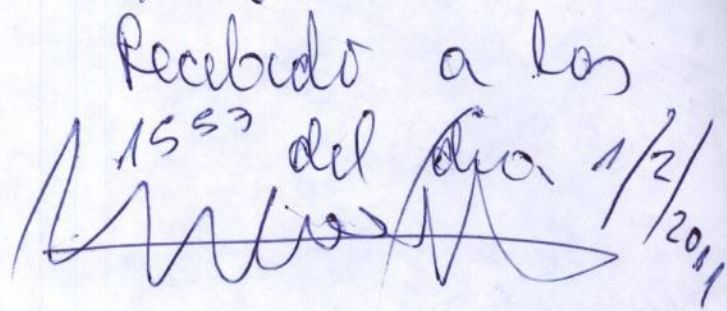 Recebido a las
15⁵³ del dia 1/2/2011